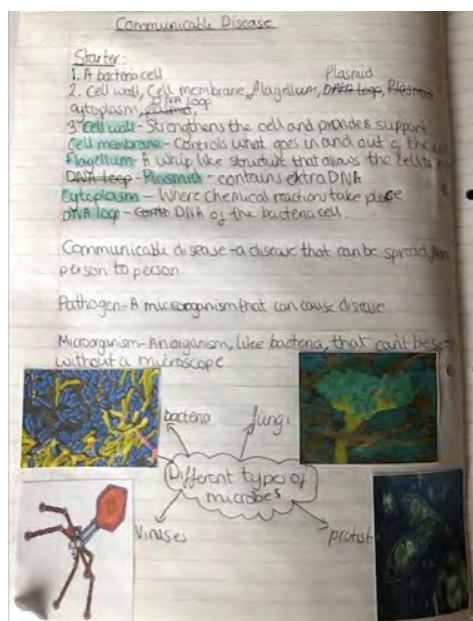 Communicable Disease
Starter:
1. A bacteria cell
Plasmid
2. Cell wall, Cell membrane, flagellum, DNA loop, Plasmid
DNA loop
cytoplasm,
3. Cell wall - Strengthens the cell and provides support
Cell membrane - Controls what goes in and out of the
Flagellum - A whip like structure that allows the cell to
DNA loop - Plasmid - contains extra DNA
Cytoplasm - Where chemical reactions take place
DNA loop - DNA of the bacteria cell.
Communicable disease - a disease that can be spread from
person to person.
Pathogen - A microorganism that can cause disease
Microorganism - An organism, like bacteria, that can't be
without a microscope
bacteria
fungi
Different types of
microbes
Viruses
protist